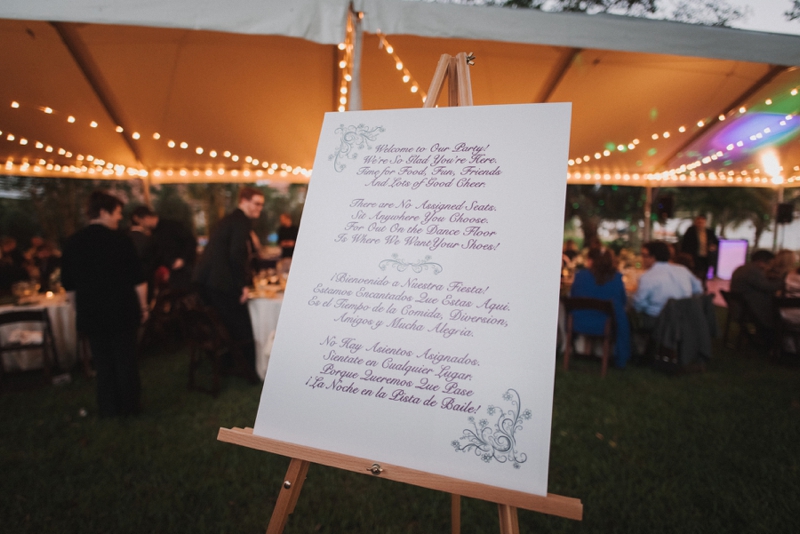 Welcome to Our Party!
We're So Glad You're Here.
Time for Food, Fun, Friends
And Lots of Good Cheer.
There are No Assigned Seats.
Sit Anywhere You Choose.
For Out On the Dance Floor
Is Where We Want Your Shoes!
¡Bienvenido a Nuestra Fiesta!
Estamos Encantados Que Estas Aqui.
Es el Tiempo de la Comida, Diversion,
Amigos y Mucha Alegria.
No Hay Asientos Asignados.
Sientate en Cualquier Lugar.
Porque Queremos Que Pase
¡La Noche en la Pista de Baile!